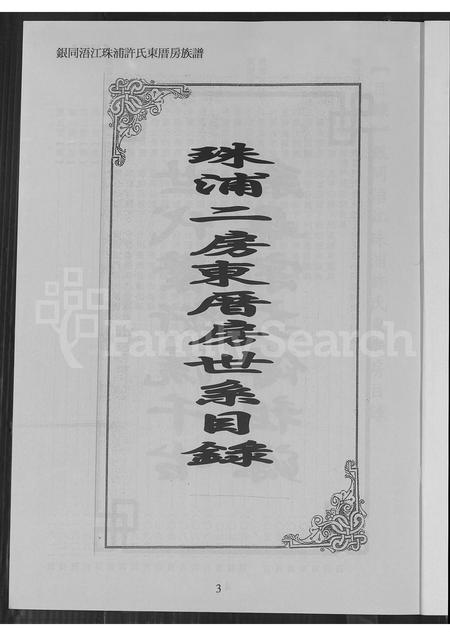 銀同浯江珠浦許氏東厝房族譜
珠浦二房東厝房世系目錄
FamilySearch
3